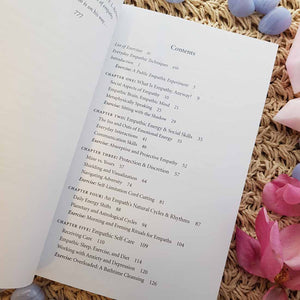 Contents
List of Exercises xi
Everyday Empathic Techniques xiii
Introduction 1
Exercise: A Public Empathic Experiment 7
CHAPTER ONE: What Is Empathy, Anyway? 9
Social Aspects of Empathy
Empathic Brain, Empathic Mind 21
Metaphysically Speaking 25
Exercise: Sitting with the Shadow 29
CHAPTER TWO: Empathic Energy & Social Skills 33
The Ins and Outs of Emotional Energy 35
Everyday Interactions 41
Communication Skills 46
Exercise: Absorptive and Protective Empathy 55
CHAPTER THREE: Protection & Discretion 57
Mine vs. Yours 58
Shielding and Visualization 64
Navigating Adversity 74
Exercise: Self-Limitation Cord Cutting 81
CHAPTER FOUR: An Empath's Natural Cycles & Rhythms 87
Daily Energy Shifts 88
Planetary and Astrological Cycles 94
Exercise: Morning and Evening Rituals for Empaths 104
CHAPTER FIVE: Empathic Self-Care 109
Receiving Care 110
Empathic Sleep, Exercise, and Diet 114
Working with Anxiety and Depression 120
Exercise: Overloaded: A Bathtime Cleansing 126